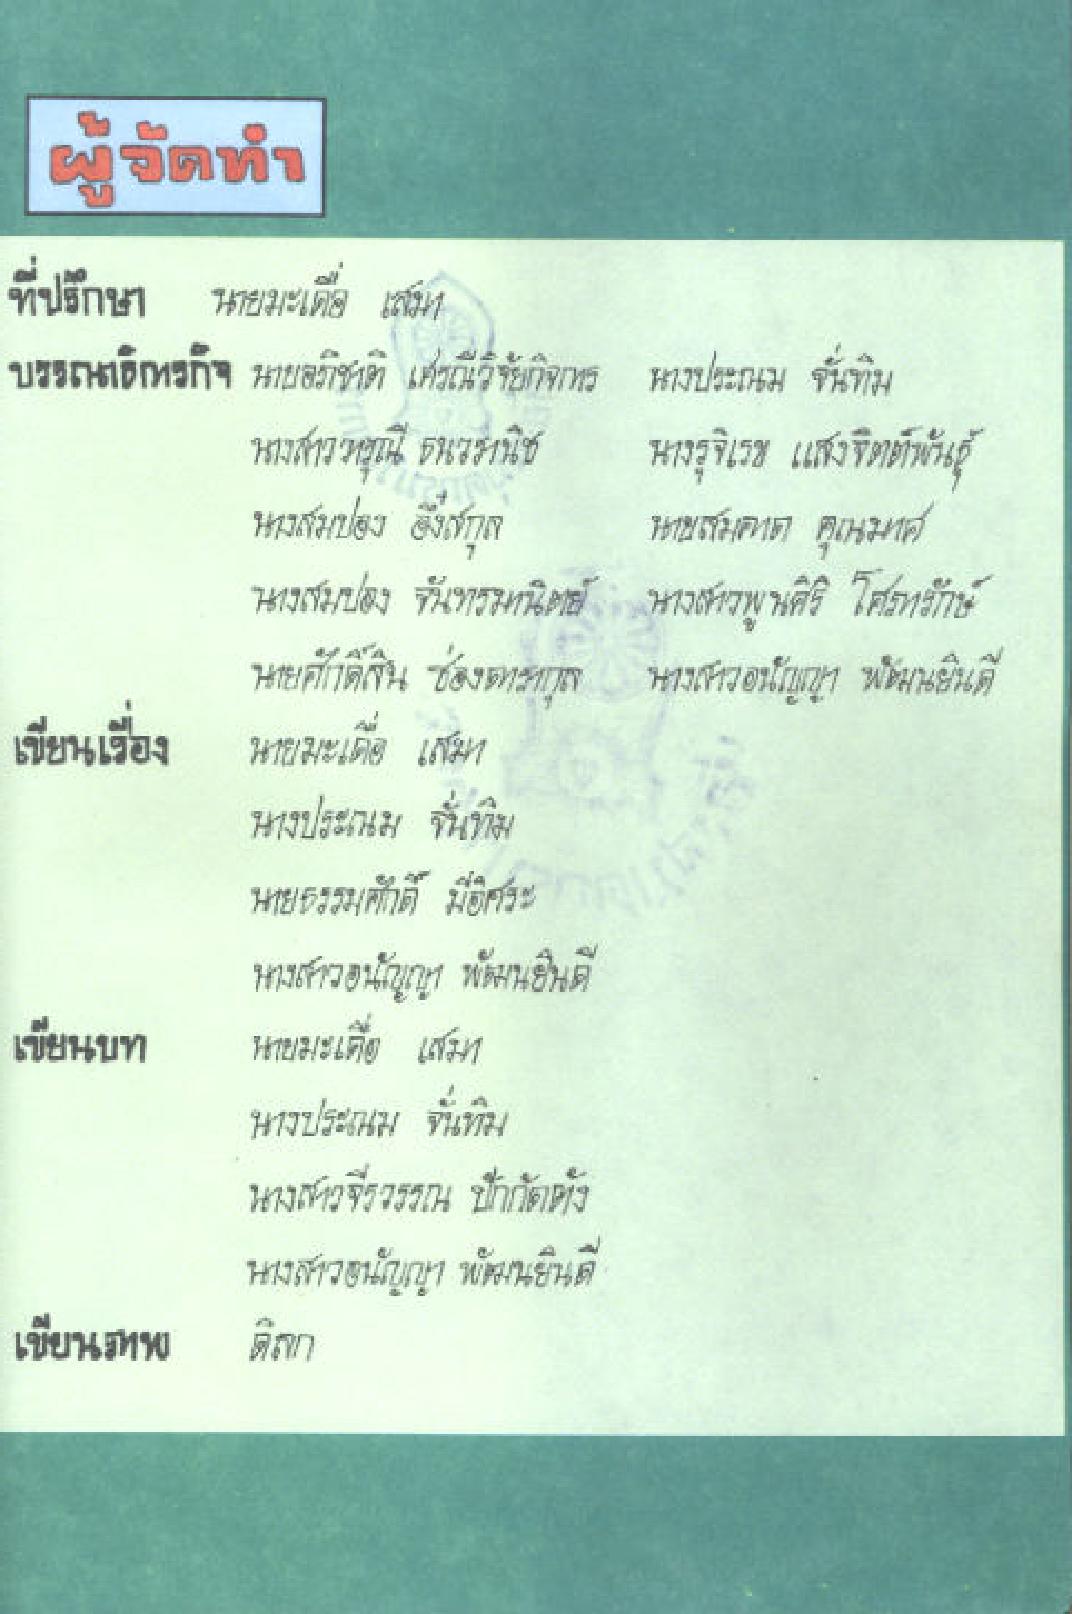 ผู้จัดทำ
ที่ปรึกษา นายมะเดื่อ เสมา
บรรณาธิการกิจ นายอภิชาติ เศรณีวิจัยกิจการ นางประณม จั่นทิม
นางสาวทรุณี ธนวรานิช นางรุจิเรข แสงจิตต์พันธุ์
นางสมปอง อึ่งสกุล นายสมคาด คุณมาศ
นางสมปอง จันทรมานิตย์ นางสาวพูนศิริ โศรทรักษ์
นายศักดิ์สิน ช่องดารากุล นางสาวอนัญญา พัฒนยินดี
เขียนเรื่อง นายมะเดื่อ เสมา
นางประณม จั่นทิม
นายธรรมศักดิ์ มีอิศระ
นางสาวอนัญญา พัฒนยินดี
เขียนบท นายมะเดื่อ เสมา
นางประณม จั่นทิม
นางสาวจีรวรรณ ปักกัดตัง
นางสาวอนัญญา พัฒนยินดี
เขียนภาพ ดิลก